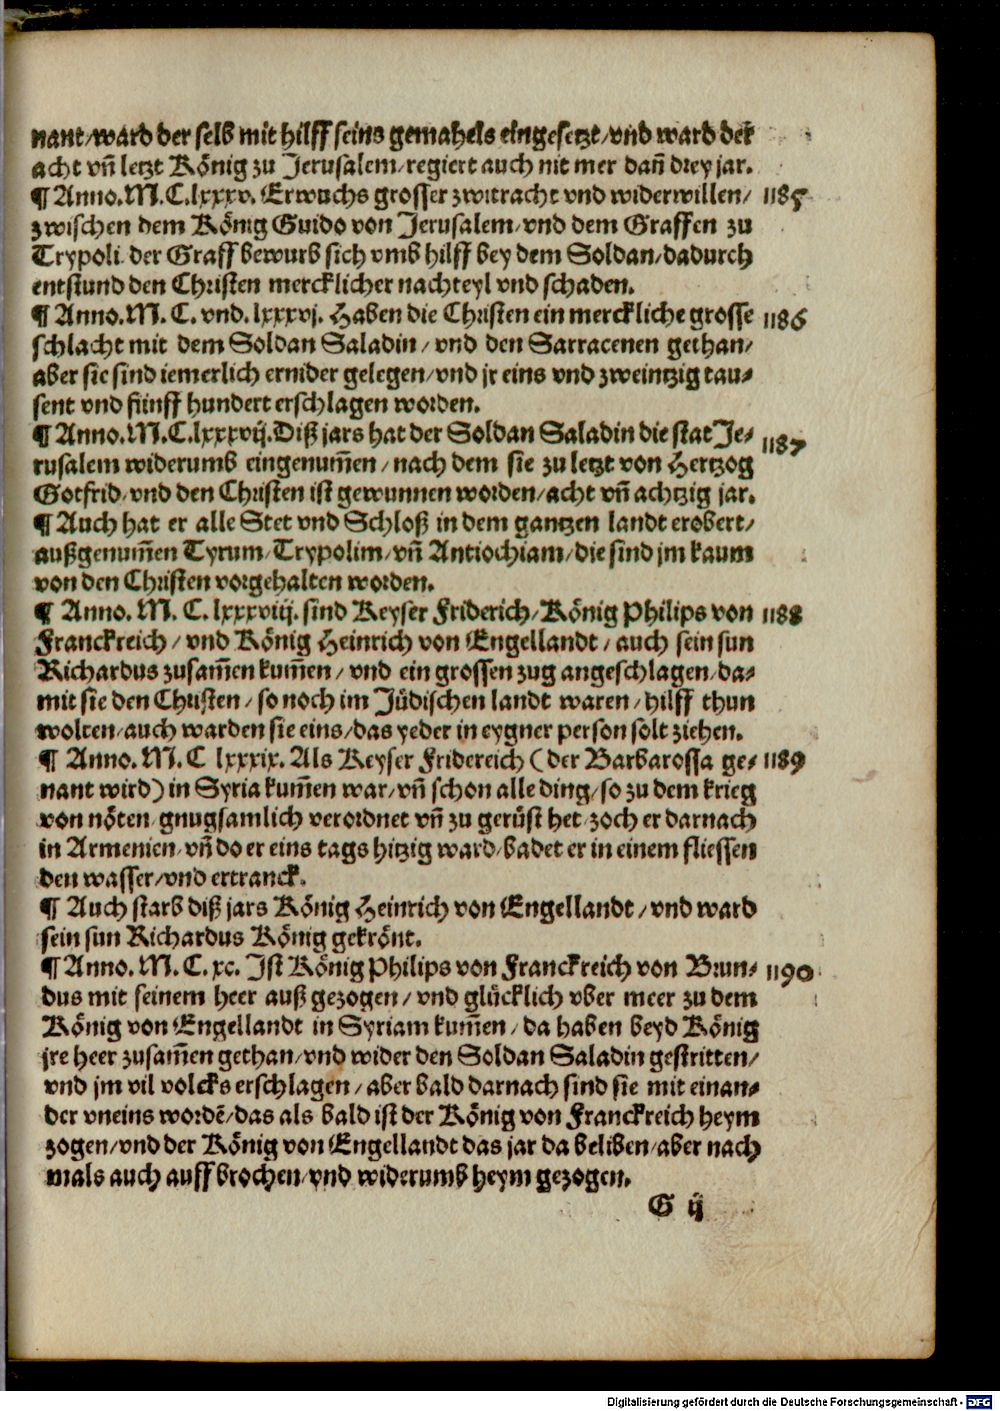 nant/ward der selb mit hilff seins gemahels eingesetzt/vnd ward der
acht vñ letzt König zu Jerusalem/regiert auch nit mer dañ drey jar.
¶ Anno.M.C.lxxxv. Erwuchs grosser zwitracht vnd widerwillen/ 1185
zwischen dem König Guido von Jerusalem/vnd dem Graffen zu
Trypoli der Graff bewurb sich vmb hilff bey dem Soldan/dadurch
entstund den Christen mercklicher nachteyl vnd schaden.
¶ Anno.M. C. vnd. lxxxvj. Haben die Christen ein merckliche grosse 1186
schlacht mit dem Soldan Saladin/ vnd den Sarracenen gethan/
aber sie sind iemerlich ernider gelegen/vnd jr eins vnd zweintzig tau⸗
sent vnd fünff hundert erschlagen worden.
¶ Anno.M.C.lxxxvij.Diß jars hat der Soldan Saladin die stat Je⸗ 1187
rusalem widerumb eingenum̃en/nach dem sie zu letzt von Hertzog
Gotfrid/vnd den Christen ist gewunnen worden/acht vñ achtzig jar.
¶ Auch hat er alle Stet vnd Schloß in dem gantzen landt erobert/
außgenum̃en Tyrum/Trypolim/vñ Antiochiam/die sind jm kaum
von den Christen vorgehalten worden.
¶ Anno. M. C. lxxxviij. sind Keyser Friderich/König Philips von 1188
Franckreich/vnd König Heinrich von Engellandt/auch sein sun
Richardus zusam̃en kum̃en/vnd ein grossen zug angeschlagen/da⸗
mit sie den Christen/so noch im Jüdischen landt waren/hilff thun
wolten/auch warden sie eins/das yeder in eygner person solt ziehen.
¶ Anno. M. C lxxxix. Als Keyser Fridereich (der Barbarossa ge⸗ 1189
nant wird) in Syria kum̃en war/vñ schon alle ding/so zu dem krieg
von nöten/gnugsamlich verordnet vñ zu gerüst het/zoch er darnach
in Armenien/vñ do er eins tags hitzig ward/badet er in einem fliessen
den wasser/vnd ertranck.
¶ Auch starb diß jars König Heinrich von Engellandt/vnd ward
sein sun Richardus König gekrönt.
¶ Anno. M. C. xc. Ist König Philips von Franckreich von Brun⸗ 1190
dus mit seinem heer auß gezogen/vnd glücklich vber meer zu dem
König von Engellandt in Syriam kum̃en/da haben beyd König
jre heer zusam̃en gethan/vnd wider den Soldan Saladin gestritten/
vnd jm vil volcks erschlagen/aber bald darnach sind sie mit einan⸗
der vneins wordẽ/das als bald ist der König von Franckreich heym
zogen/vnd der König von Engellandt das jar da beliben/aber nach
mals auch auff brochen/vnd widerumb heym gezogen.
G ij
Digitalisierung gefördert durch die Deutsche Forschungsgemeinschaft - DFG